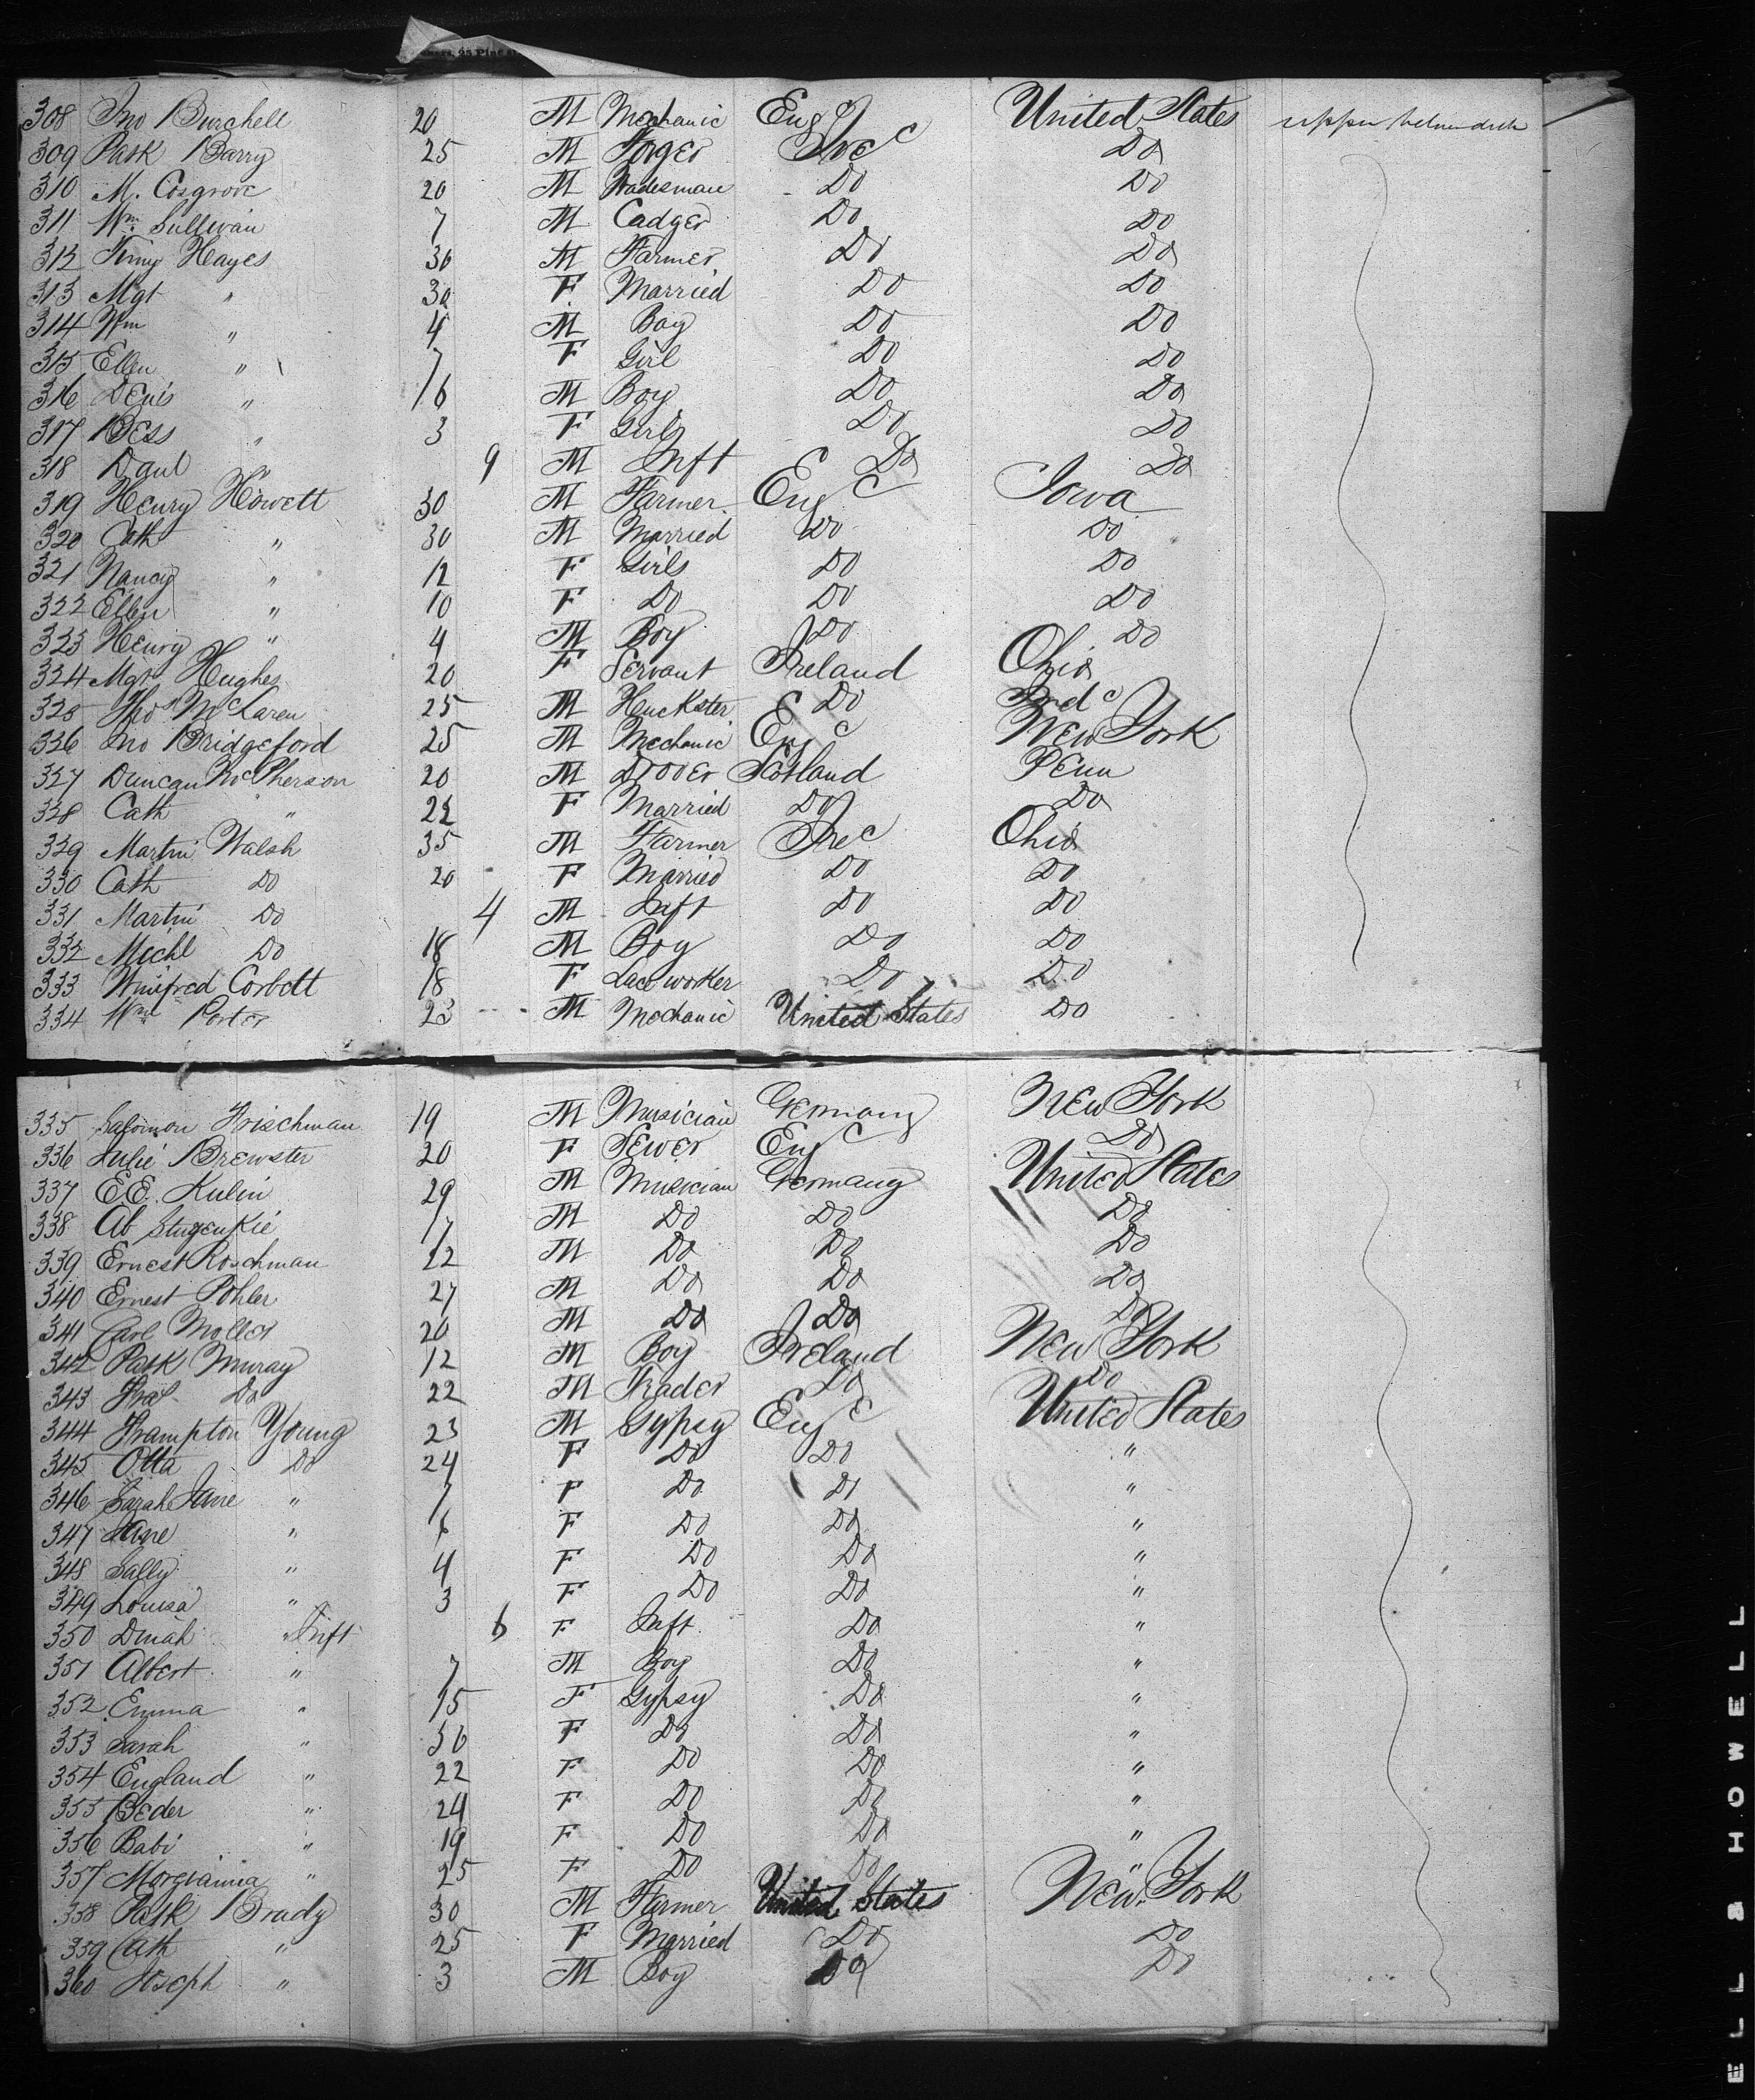 25 Pine St
308 Jno Burchell 20 M Mechanic Eng United States upper between deck
309 Patk Barry 25 M Forger Ire Do
310 M. Cosgrove 20 M Tradesman Do Do
311 Wm Sullivan 7 M Cadger Do Do
312 Hayes 30 M Farmer Do Do
313 Mgt " 30 F Married Do Do
314 Wm " 4 M Boy Do Do
315 Ellen " 7 F Girl Do Do
316 Denis " M Boy Do Do
317 Bess " 3 F Girls Do Do
318 Danl " 9 M Inft Do Do
319 Henry Howett 30 M Farmer Eng Iowa
320 Cath " 30 M Married Do Do
321 Nancy " 12 F Girls Do Do
322 Ellen " 10 F Do Do Do
323 Henry " 4 M Boy Do Do
324 Mgt Hughes 20 F Servant Ireland Ohio
325 Thos McLaren 25 M Huckster Do Ind
326 Jno Bridgeford 25 M Mechanic Eng New York
327 Duncan McPherson 20 M Drover Scotland Penn
328 Cath " 22 F Married Do Do
329 Martin Walsh 35 M Farmer Ire Ohio
330 Cath Do 20 F Married Do Do
331 Martin Do 4 M Inft Do Do
332 Michl Do 18 M Boy Do Do
333 Winifred Corbett 18 F Lace worker Do Do
334 Wm Porter 23 M Mechanic United States Do
335 Salomon Frischman 19 M Musician Germany New York
336 Julie Brewster 20 F Sewer Eng Do
337 E.E. Kulin 29 M Musician Germany United States
338 Ab 17 M Do Do Do
339 Ernest Roschman 22 M Do Do Do
340 Ernest Pohler 27 M Do Do Do
341 Carl Moller 20 M Do Do Do
342 Patk Muray 12 M Boy Ireland New York
343 Do 22 M Trader Do Do
344 Frampton Young 23 M Gypsy Eng United States
345 Otta Do 24 F Do Do "
346 Sarah Jane " 7 F Do Do "
347 Jane " 6 F Do Do "
348 Sally " 4 F Do Do "
349 Louisa " 3 F Do Do "
350 Dinah " Inft 6 F Inft Do "
351 Albert " 7 M Boy Do "
352 Emma " 15 F Gypsy Do "
353 Sarah " 30 F Do Do "
354 England " 22 F Do Do "
355 Beder " 24 F Do Do "
356 Babi " 19 F Do Do "
357 Morgianna " 25 F Do Do "
358 Patk Brady 30 M Farmer United States New York
359 Cath " 25 F Married Do Do
360 Joseph " 3 M Boy Do Do
ELL & HOWELL